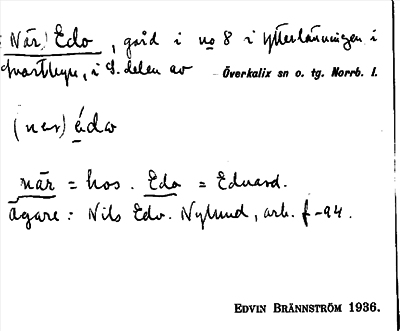 När) Edo, gård i no 8 i Ytterlänningen i
Svartbyn, i S. delen av Överkalix sn o. tg. Norrb. l.
(nær) édω
när = hos. Edo = Eduard.
Ägare: Nils Edv. Nylund, arb. f-94.
EDVIN BRÄNNSTRÖM 1936.